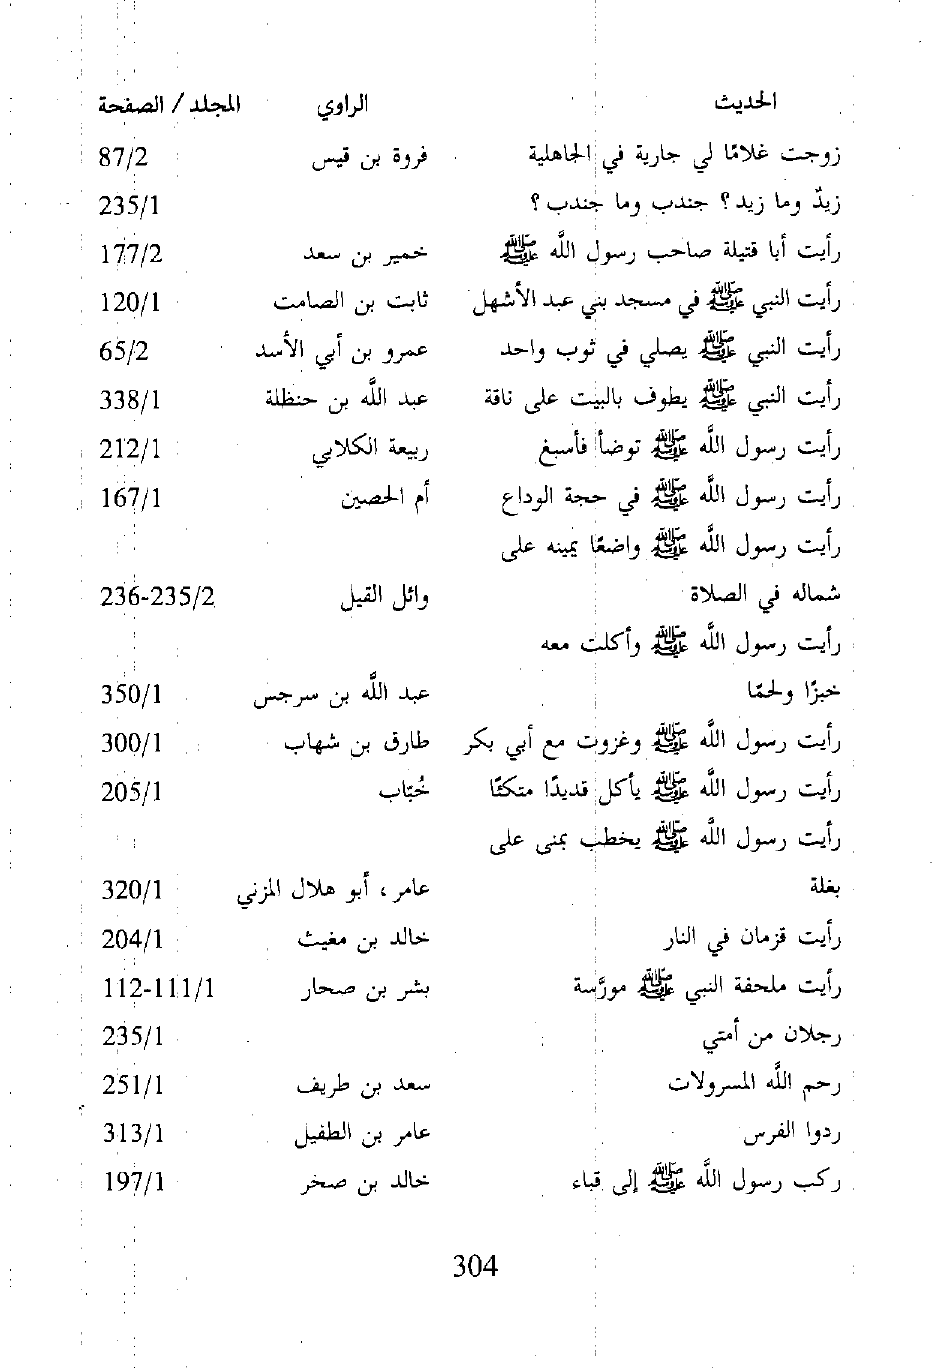 الحديث الراوي المجلد / الصفحة
زوجت غلامًا لي جارية في الجاهلية فروة بن قيس 87/2
زيدٌ وما زيد؟ جندب وما جندب؟ 235/1
رأيت أبا قتيلة صاحب رسول اللَّه ﷺ خمير بن سعد 177/2
رأيت النبي ﷺ في مسجد بني عبد الأشهل ثابت بن الصامت 120/1
رأيت النبي ﷺ يصلي في ثوب واحد عمرو بن أبي الأسد 65/2
رأيت النبي ﷺ يطوف بالبيت على ناقة عبد اللَّه بن حنظلة 338/1
رأيت رسول اللَّه ﷺ توضأ فأسبغ ربيعة الكلابي 212/1
رأيت رسول اللَّه ﷺ في حجة الوداع أم الحصين 167/1
رأيت رسول اللَّه ﷺ واضعًا يمينه على
شماله في الصلاة وائل القيل 236-235/2
رأيت رسول اللَّه ﷺ وأكلت معه
خبزًا ولحمًا عبد اللَّه بن سرجس 350/1
رأيت رسول اللَّه ﷺ وغزوت مع أبي بكر طارق بن شهاب 300/1
رأيت رسول اللَّه ﷺ يأكل قديدًا متكئًا خُبّاب 205/1
رأيت رسول اللَّه ﷺ يخطب بمنى على
بغلة عامر، أبو هلال المزني 320/1
رأيت قزمان في النار خالد بن مغيث 204/1
رأيت ملحفة النبي ﷺ مورَّسة بشر بن صحار 112-111/1
رجلان من أمتي 235/1
رحم اللَّه المسرولات سعد بن طريف 251/1
ردوا الفرس عامر بن الطفيل 313/1
ركب رسول اللَّه ﷺ إلى قباء خالد بن صخر 197/1
304